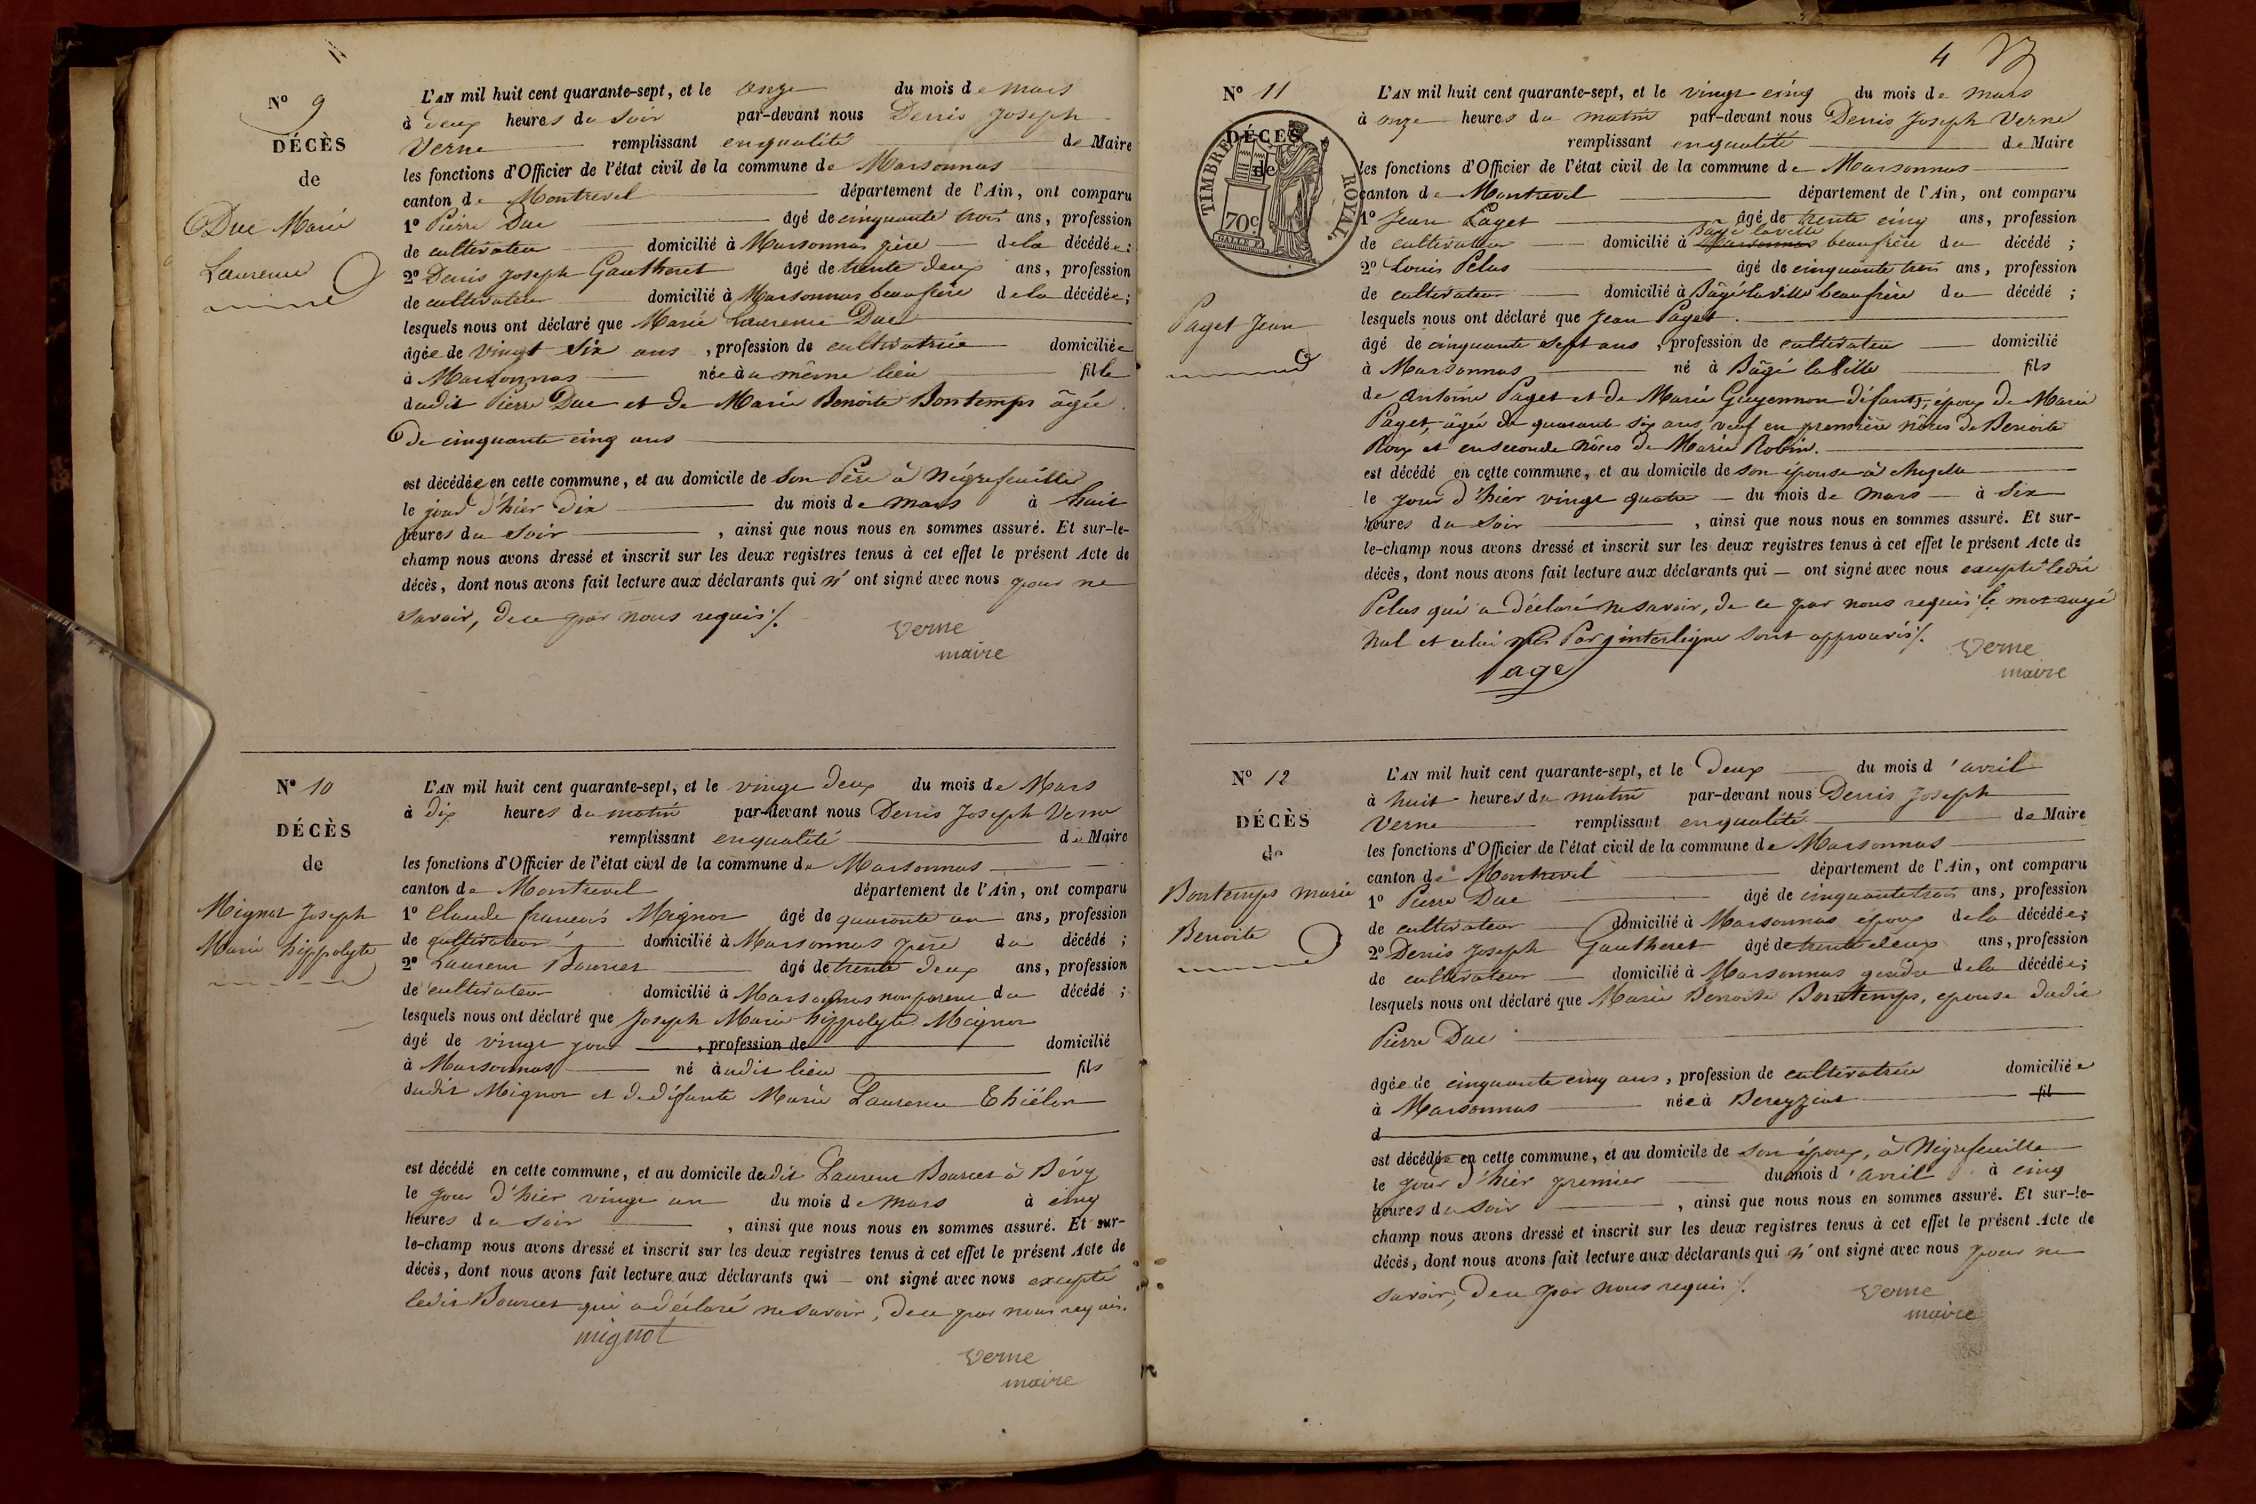 N° 9
DÉCÈS
de
Duc Marie
Laurence
L'AN mil huit cent quarante-sept, et le onze du mois de mars
à deux heures du soir par-devant nous Denis Joseph
Verne remplissant en qualité de Maire
les fonctions d'Officier de l'état civil de la commune de Marsonnas
canton de Montrevel département de l'Ain, ont comparu
1° Pierre Duc âgé de cinquante trois ans, profession
de cultivateur domicilié à Marsonnas père de la décédée;
2° Denis Joseph Gautheret âgé de trente deux ans, profession
de cultivateur domicilié à Marsonnas beaufrère de la décédée;
lesquels nous ont déclaré que Marie Laurence Duc
âgée de vingt six ans, profession de cultivatrice domiciliée
à Marsonnas née à u même lieu fille
dudit Pierre Duc et de Marie Benoite Bontemps âgée
de cinquante cinq ans
est décédée en cette commune, et au domicile de son Père à Négrefeuille
le jour d'hier dix du mois de mars à huit
heures du soir, ainsi que nous nous en sommes assuré. Et sur-le-
champ nous avons dressé et inscrit sur les deux registres tenus à cet effet le présent Acte de
décès, dont nous avons fait lecture aux déclarants qui n'ont signé avec nous pour ne
savoir, de ce par nous requis ./.
Verne
maire
N° 10
DÉCÈS
de
Mignot Joseph
Marie hippolyte
L'AN mil huit cent quarante-sept, et le vingt deux du mois de Mars
à dix heures du matin par-devant nous Denis Joseph Verne
remplissant en qualité de Maire
les fonctions d'Officier de l'état civil de la commune de Marsonnas
canton de Montrevel département de l'Ain, ont comparu
1° Claude francois Mignot âgé de quarante un ans, profession
de cultivateur domicilié à Marsonnas père du décédé;
2° Laurent Bourcet âgé de trente deux ans, profession
de cultivateur domicilié à Marsonnas non parent du décédé;
lesquels nous ont déclaré que Joseph Marie hippolyte Mignot
âgé de vingt jour, profession de domicilié
à Marsonnas né à udit lieu fils
dudit Mignot et de défunte Marie Laurence
est décédé en cette commune, et au domicile dudit Laurent Bourcet à Bévy
le jour d'hier vingt un du mois de mars à cinq
heures du soir, ainsi que nous nous en sommes assuré. Et sur-
le-champ nous avons dressé et inscrit sur les deux registres tenus à cet effet le présent Acte de
décès, dont nous avons fait lecture aux déclarants qui ont signé avec nous excepté
ledit Bourcet qui a déclaré ne savoir, de ce par nous requis.
mignot
Verne
maire
4
N° 11
DÉCÈS
de
TIMBRE ROYAL.
70c
Paget Jean
L'AN mil huit cent quarante-sept, et le vingt cinq du mois de mars
à onze heures du matin par-devant nous Denis Joseph Verne
remplissant en qualité de Maire
les fonctions d'Officier de l'état civil de la commune de Marsonnas
canton de Montrevel département de l'Ain, ont comparu
1° Jean Paget âgé de trente cinq ans, profession
Bagé laville
de cultivateur domicilié à Marsonnas beaufrère du décédé;
2° Louis Pelus âgé de cinquante trois ans, profession
de cultivateur domicilié à Bâgé laville beaufrère du décédé;
lesquels nous ont déclaré que Jean Paget
âgé de cinquante sept ans, profession de cultivateur domicilié
à Marsonnas né à Bâgé la Ville fils
de Antoine Paget et de Marie Guyennon défunts, époux de Marie
Paget, âgée de quarante six ans, veuf en première nôces de Benoite
Roux et en seconde nôces de Marie Robin.
est décédé en cette commune, et au domicile de son épouse à
le jour d'hier vingt quatre du mois de mars à six
heures du soir, ainsi que nous nous en sommes assuré. Et sur-
le-champ nous avons dressé et inscrit sur les deux registres tenus à cet effet le présent Acte de
décès, dont nous avons fait lecture aux déclarants qui ont signé avec nous excepté ledit
Pelus qui a déclaré ne savoir, de ce par nous requis, le mot rayé
nul et celui interligne sont approuvés ./.
Verne
maire
Paget
N° 12
DÉCÈS
de
Bontemps marie
Benoite
L'AN mil huit cent quarante-sept, et le Deux du mois d'avril
à huit heures du matin par-devant nous Denis Joseph
Verne remplissant en qualité de Maire
les fonctions d'Officier de l'état civil de la commune de Marsonnas
canton de Montrevel département de l'Ain, ont comparu
1° Pierre Duc âgé de cinquante trois ans, profession
de cultivateur domicilié à Marsonnas époux de la décédée;
2° Denis Joseph Gautheret âgé de trente deux ans, profession
de cultivateur domicilié à Marsonnas gendre de la décédée;
lesquels nous ont déclaré que Marie Benoite Bontemps, épouse dudit
Pierre Duc
âgée de cinquante cinq ans, profession de cultivatrice domiciliée
à Marsonnas née à Bereyziat fil
d
est décédée en cette commune, et au domicile de son époux, à Négrefeuille
le jour d'hier premier du mois d'avril à cinq
heures du soir, ainsi que nous nous en sommes assuré. Et sur-le-
champ nous avons dressé et inscrit sur les deux registres tenus à cet effet le présent Acte de
décès, dont nous avons fait lecture aux déclarants qui n'ont signé avec nous pour ne
savoir, de ce par nous requis ./.
Verne
maire